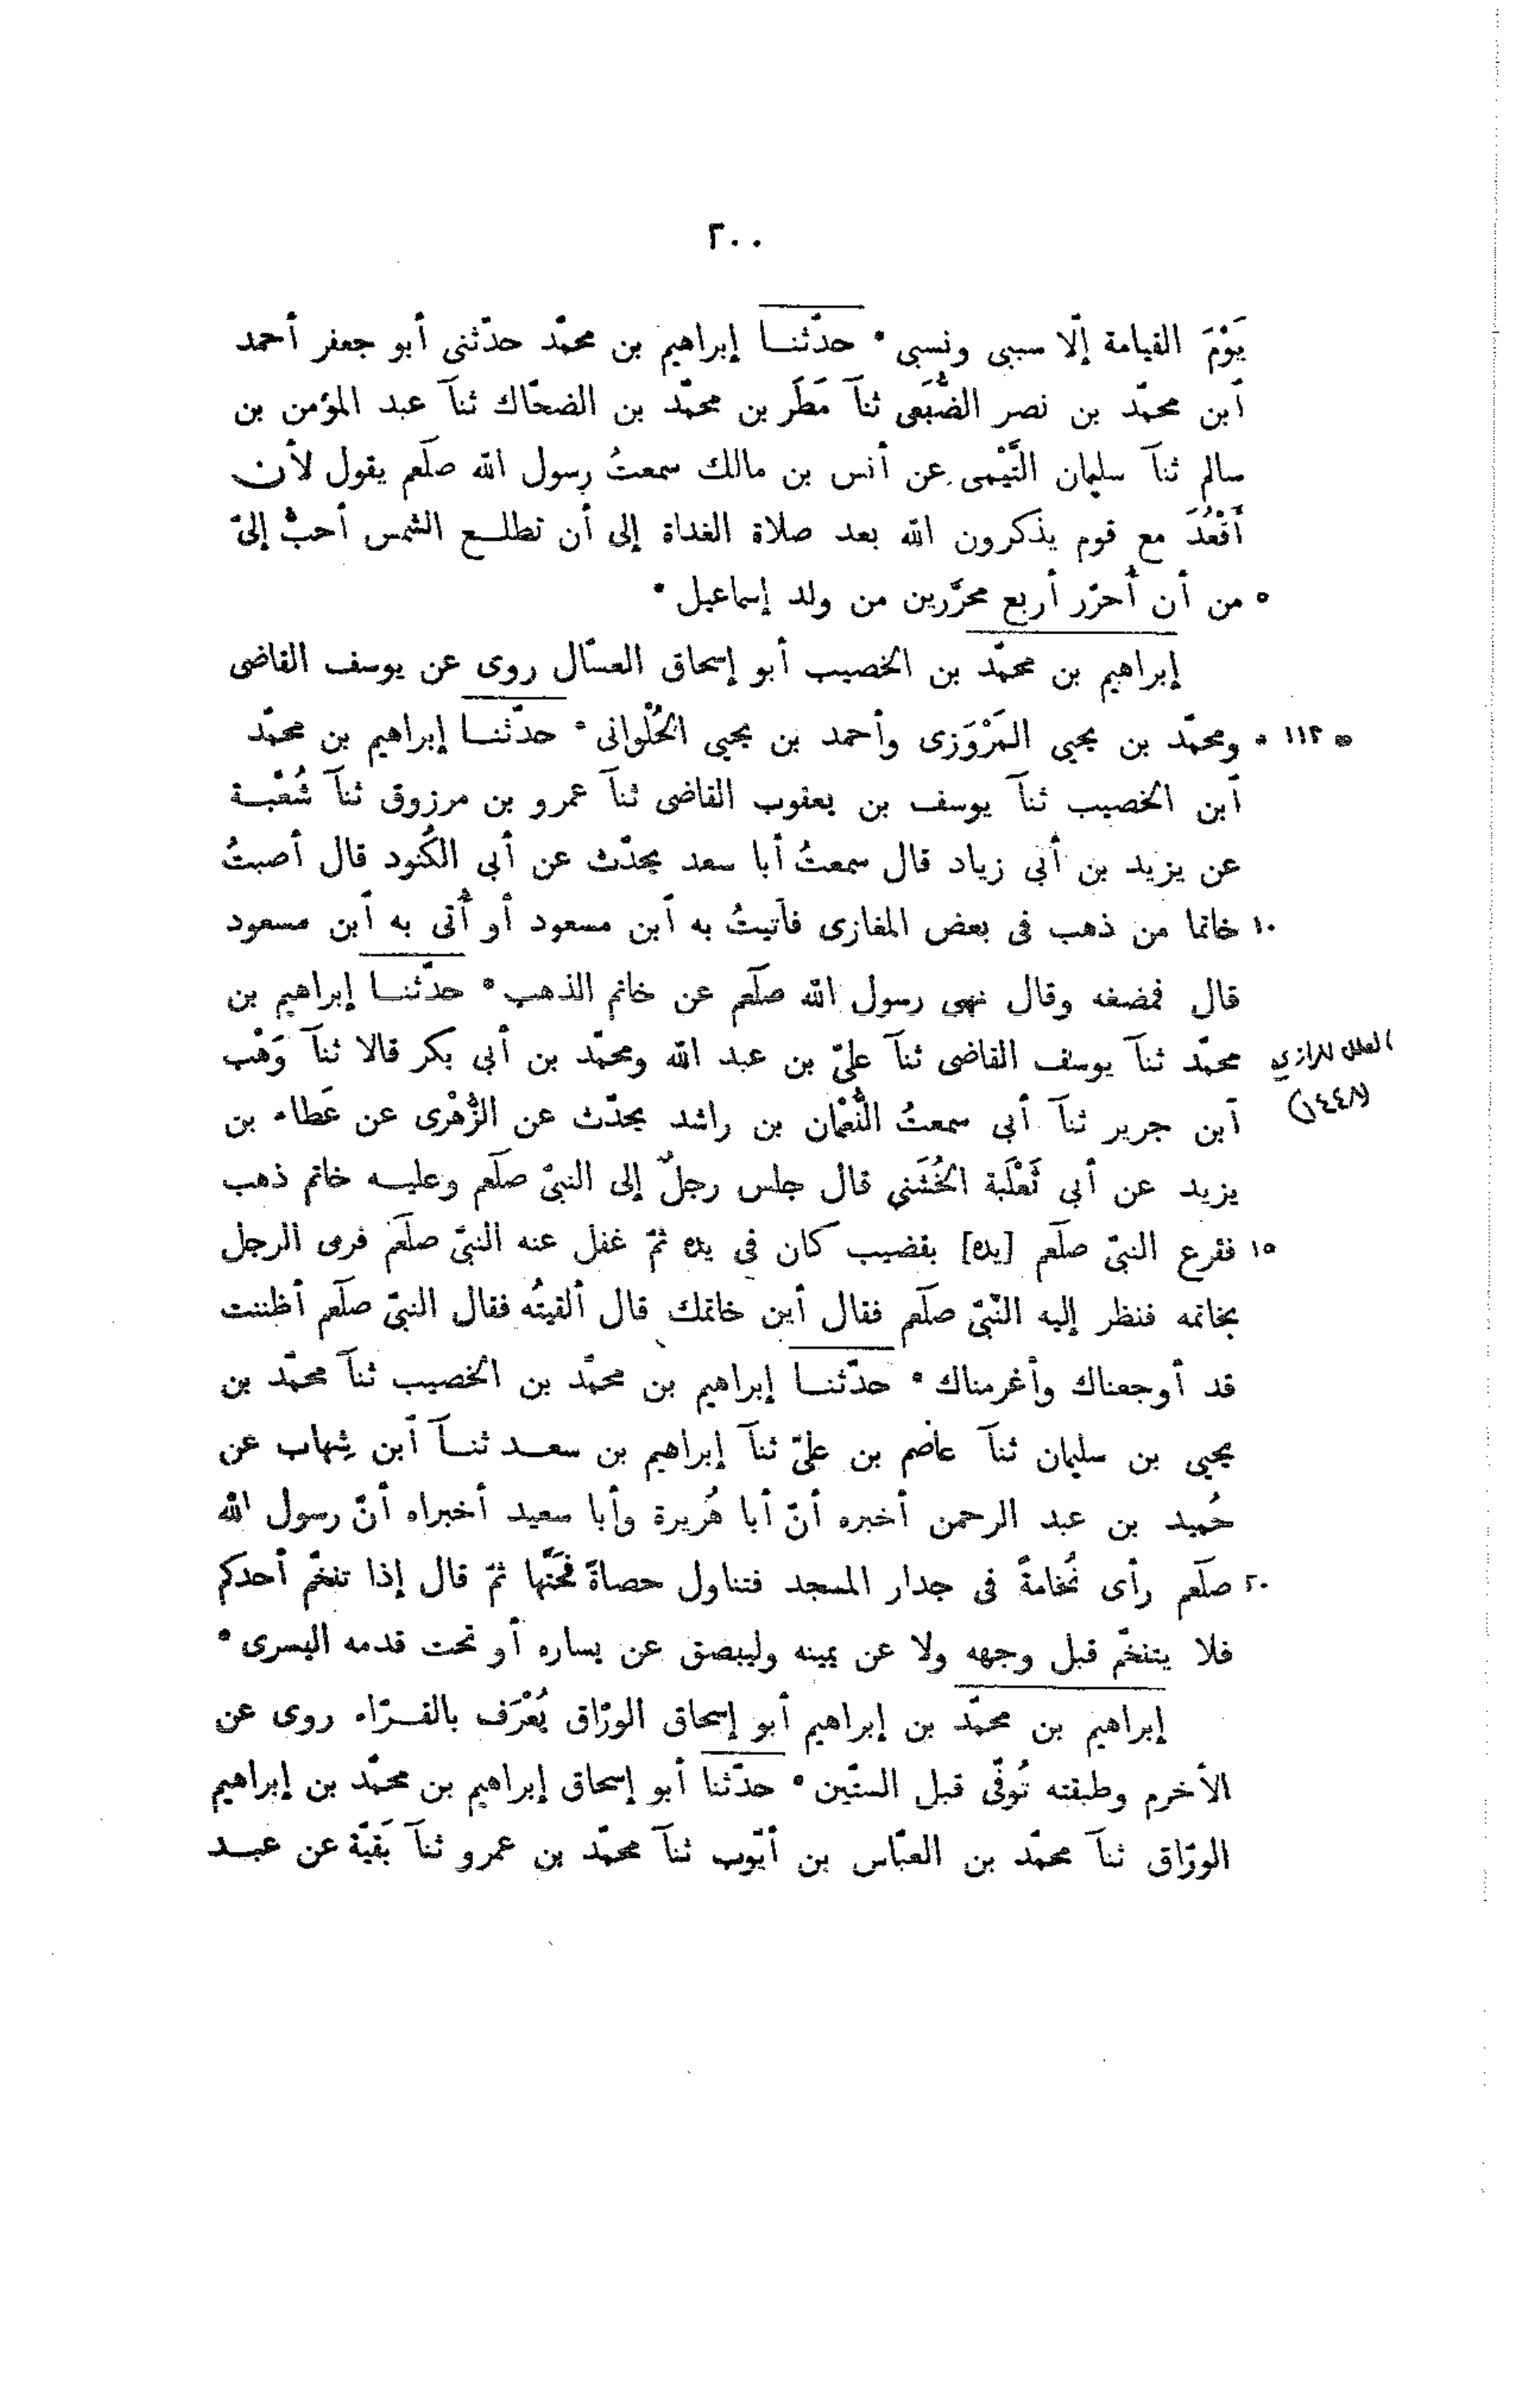 ٢٠٠
يَوْمَ القيامة إلّا سببى ونسبى * حدّثنــا إبراهيم بن محمّد حدّثنى أبو جعفر أحمد
ٱبن محمّد بن نصر الضُّبَعى ثنآ مَطَر بن محمّد بن الضحّاك ثنآ عبد المؤمن بن
سالم ثنآ سليمان التَّيْمى عن أنس بن مالك سمعتُ رسول الله صلّعم يقول لأن
أَقْعُدَ مع قوم يذكرون الله بعد صلاة الغداة إلى أن تطلــع الشمس أحبُّ إلىّ
٥ من أن أُحرّر أربع محرَّرين من ولد إسماعيل *
إبراهيم بن محمّد بن الخصيب أبو إسحاق العسّال روى عن يوسف القاضى
* ١١٢ * ومحمّد بن يحيى المَرْوَزى وأحمد بن يحيى الحُلْوانى * حدّثنــا إبراهيم بن محمّد
ٱبن الخصيب ثنآ يوسف بن يعقوب القاضى ثنآ عمرو بن مرزوق ثنآ شُعْبــة
عن يزيد بن أبى زياد قال سمعتُ أبا سعد يحدّث عن أبى الكُنود قال أصبتُ
١٠ خاتما من ذهب فى بعض المغازى فأتيتُ به ٱبن مسعود أو أُتى به ٱبن مسعود
قال فمضغه وقال نهى رسول الله صلّعم عن خاتم الذهب * حدّثنــا إبراهيم بن
محمّد ثنآ يوسف القاضى ثنآ علىّ بن عبد الله ومحمّد بن أبى بكر قالا ثنآ وَهْب
العلل للرازي
(١٤٤٨)
ٱبن جرير ثنآ أبى سمعتُ النُّعْمان بن راشد يحدّث عن الزُّهْرى عن عَطاء بن
يزيد عن أبى ثَعْلَبة الخُشَنى قال جلس رجلٌ إلى النبىّ صلّعم وعليــه خاتم ذهب
١٥ فقرع النبىّ صلّعم [يده] بقضيب كان فى يده ثمّ غفل عنه النبىّ صلّعم فرمى الرجل
بخاتمه فنظر إليه النّبىّ صلّعم فقال أين خاتمك قال ألقيتُه فقال النبىّ صلّعم أظننت
قد أوجعناك وأغرمناك * حدّثنــا إبراهيم بن محمّد بن الخصيب ثنآ محمّد بن
يحيى بن سليمان ثنآ عاصم بن علىّ ثنآ إبراهيم بن سعــد ثنــآ ٱبن شِهاب عن
حُميد بن عبد الرحمن أخبره أنّ أبا هُريرة وأبا سعيد أخبراه أنّ رسول الله
٢٠ صلّعم رأى نُخامةً فى جدار المسجد فتناول حصاةً فحَتَّها ثمّ قال إذا تنخّم أحدكم
فلا يتنخّم قبل وجهه ولا عن يمينه وليبصق عن يساره أو تحت قدمه اليسرى *
إبراهيم بن محمّد بن إبراهيم أبو إسحاق الورّاق يُعْرَف بالفــرّاء روى عن
الأخرم وطبقته تُوفّى قبل الستّين * حدّثنا أبو إسحاق إبراهيم بن محمّد بن إبراهيم
الورّاق ثنآ محمّد بن العبّاس بن أيّوب ثنآ محمّد بن عمرو ثنآ بَقيّة عن عبــد